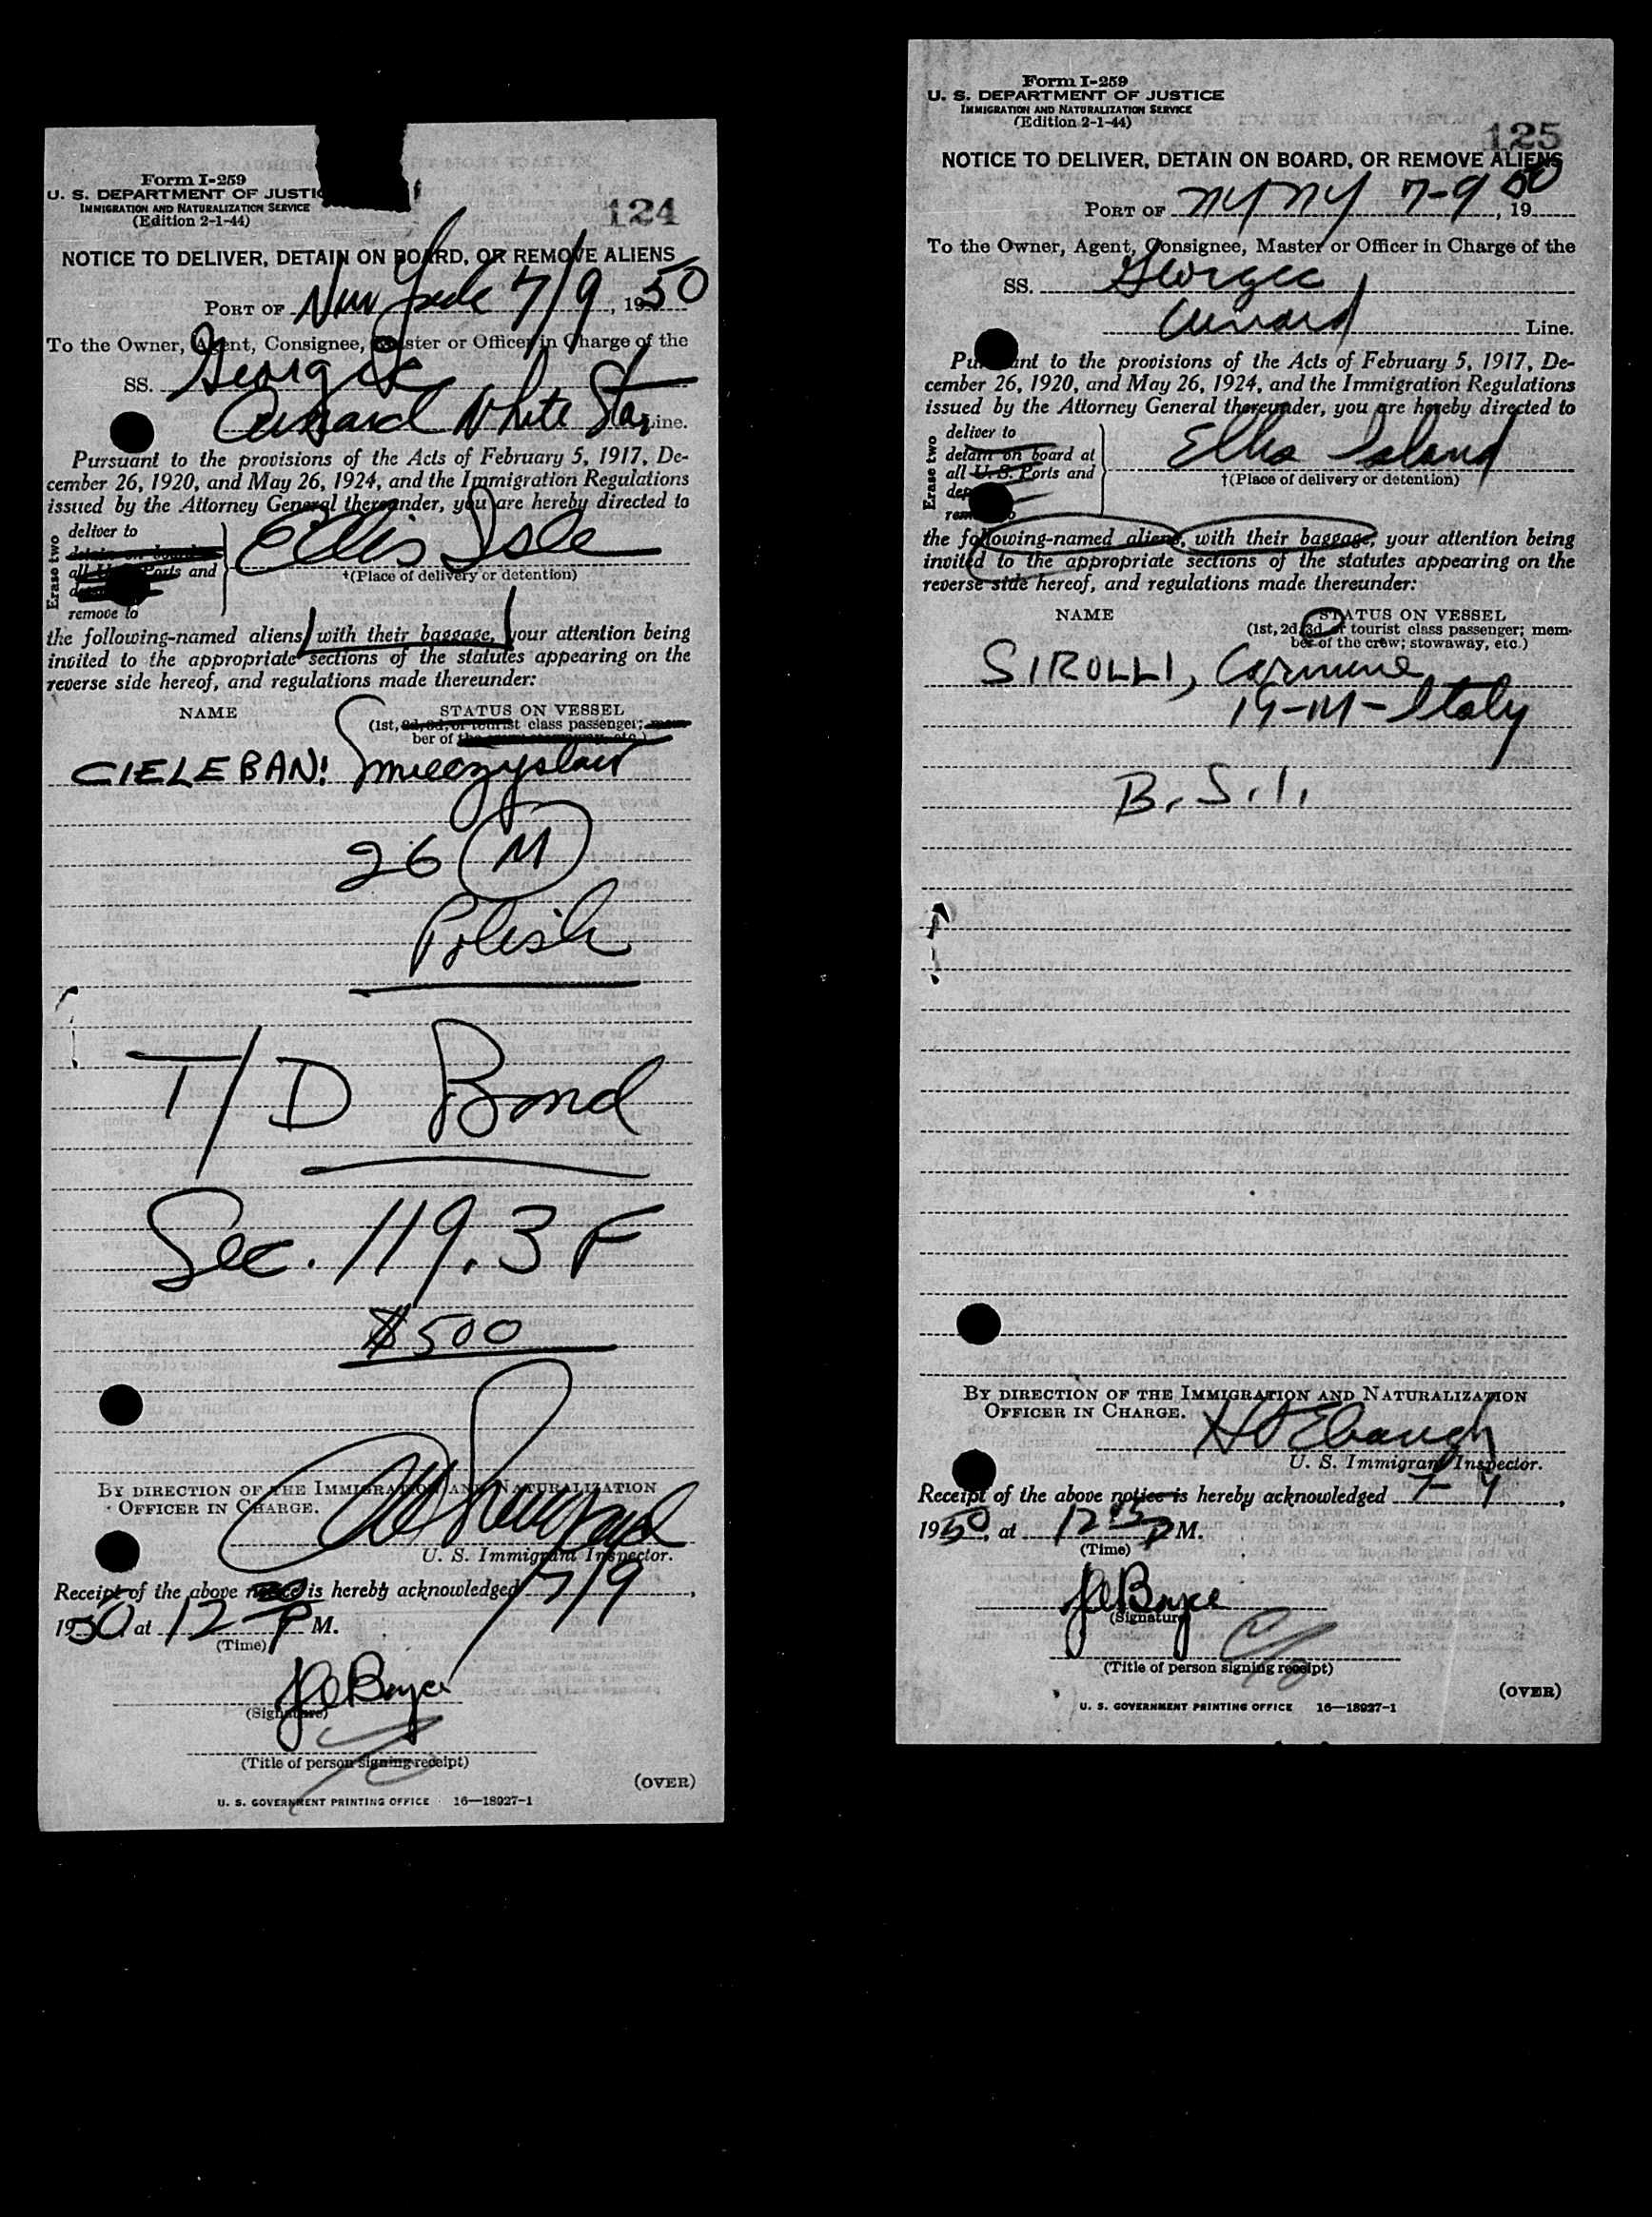 Form I-259
U. S. DEPARTMENT OF JUSTIC
IMMIGRATION AND NATURALIZATION SERVICE
(Edition 2-1-44)
124
NOTICE TO DELIVER, DETAIN ON BOARD, OR REMOVE ALIENS
PORT OF New York 7/9, 1950
To the Owner, Agent, Consignee, Master or Officer in Charge of the
SS. Georgic
Cunard White Star Line.
Pursuant to the provisions of the Acts of February 5, 1917, De-
cember 26, 1920, and May 26, 1924, and the Immigration Regulations
issued by the Attorney General thereunder, you are hereby directed to
Erase two
deliver to
detain on board at
all U. S. Ports and
remove to
Ellis Isle
†(Place of delivery or detention)
the following-named aliens, with their baggage, your attention being
invited to the appropriate sections of the statutes appearing on the
reverse side hereof, and regulations made thereunder:
NAME STATUS ON VESSEL
(1st, 2d, 3d, or tourist class passenger; mem-
ber of the crew; stowaway, etc.)
CIELEBAN! Smieczyslaw
26 M
Polish
T/D Bond
Sec. 119.3 F
$500
BY DIRECTION OF THE IMMIGRATION AND NATURALIZATION
OFFICER IN CHARGE.
U. S. Immigrant Inspector.
Receipt of the above notice is hereby acknowledged 7/9,
1950 at 12 P M.
(Time)
JC Boyce
(Signature)
(Title of person signing receipt)
(OVER)
U. S. GOVERNMENT PRINTING OFFICE 16—18927-1
Form I-259
U. S. DEPARTMENT OF JUSTICE
IMMIGRATION AND NATURALIZATION SERVICE
(Edition 2-1-44)
125
NOTICE TO DELIVER, DETAIN ON BOARD, OR REMOVE ALIENS
PORT OF NY NY 7-9, 1950
To the Owner, Agent, Consignee, Master or Officer in Charge of the
SS. Georgic
Cunard Line.
Pursuant to the provisions of the Acts of February 5, 1917, De-
cember 26, 1920, and May 26, 1924, and the Immigration Regulations
issued by the Attorney General thereunder, you are hereby directed to
Erase two
deliver to
detain on board at
all U. S. Ports and
Ellis Island
†(Place of delivery or detention)
the following-named aliens, with their baggage, your attention being
invited to the appropriate sections of the statutes appearing on the
reverse side hereof, and regulations made thereunder:
NAME STATUS ON VESSEL
(1st, 2d, 3d, or tourist class passenger; mem-
ber of the crew; stowaway, etc.)
SIROLLI, Carmine
19-M-Italy
B.S.I.
BY DIRECTION OF THE IMMIGRATION AND NATURALIZATION
OFFICER IN CHARGE.
Ebaugh
U. S. Immigrant Inspector.
Receipt of the above notice is hereby acknowledged 7-9,
1950, at 12 P M.
(Time)
JC Boyce
(Signature)
(Title of person signing receipt)
(OVER)
U. S. GOVERNMENT PRINTING OFFICE 16—18927-1